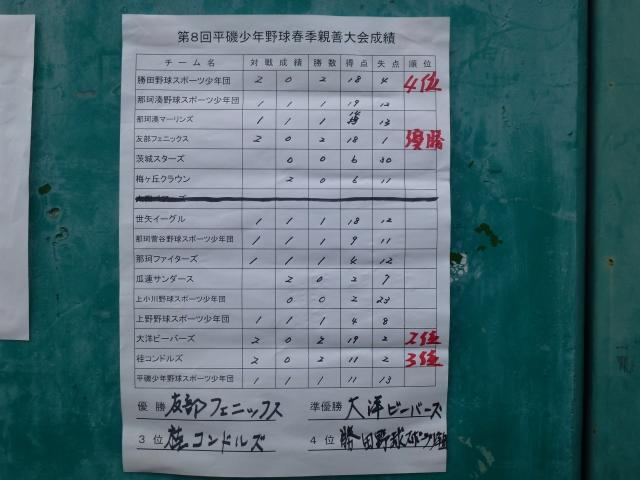 第8回平磯少年野球春季親善大会成績
チーム名 対戦成績 勝数 得点 失点 順位
勝田野球スポーツ少年団 2 0 2 18 4 4位
那珂湊野球スポーツ少年団 1 1 1 19 12
那珂湊マーリンズ 1 1 1 13
友部フェニックス 2 0 2 18 1 優勝
茨城スターズ 0 0 6 30
梅ヶ丘クラウン 2 0 6 11
世矢イーグル 1 1 1 18 12
那珂菅谷野球スポーツ少年団 1 1 1 9 11
那珂ファイターズ 1 1 1 4 12
瓜連サンダース 2 0 2 7
上小川野球スポーツ少年団 0 0 2 23
上野野球スポーツ少年団 1 1 1 4 8
大洋ビーバーズ 2 0 2 19 2 2位
桂コンドルズ 2 0 2 11 2 3位
平磯少年野球スポーツ少年団 1 1 1 11 13
優勝 友部フェニックス 準優勝 大洋ビーバーズ
3位 桂コンドルズ 4位 勝田野球スポーツ少年団